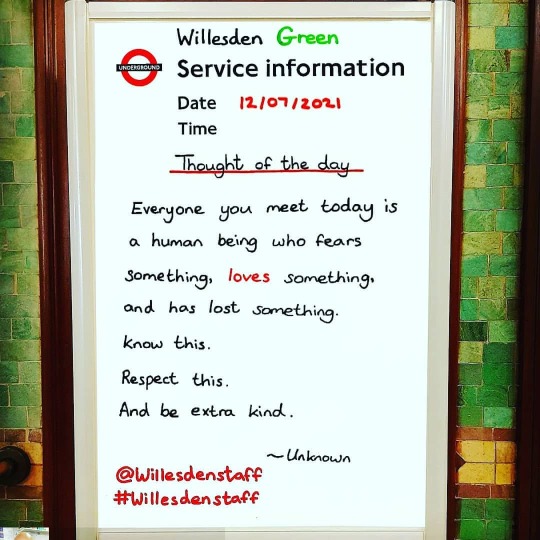 Willesden Green
UNDERGROUND
Service information
Date 12/07/2021
Time
Thought of the day
Everyone you meet today is
a human being who fears
something, loves something,
and has lost something.
Know this.
Respect this.
And be extra kind.
~Unknown
@Willesdenstaff
#Willesdenstaff